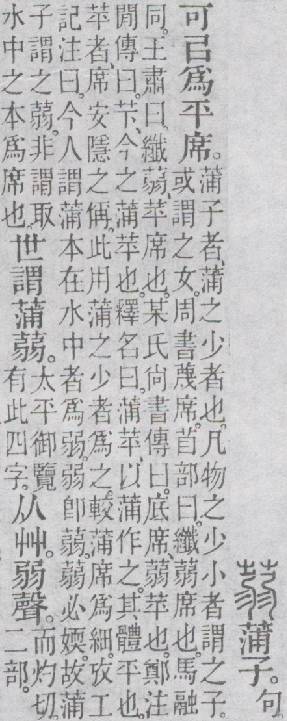 蒻 蒲子。句
可㠯爲平席。蒲子者、蒲之少者也。凡物之少小者謂之子。
或謂之女。周書蔑席。苜部曰。纖蒻席也。馬融
同。王肅曰。纖蒻苹席也。某氏尚書傳曰。底席蒻苹也。鄭注
閒傳曰。芐、今之蒲苹也。釋名曰。蒲苹、以蒲作之。其體平也。
苹者、席安隱之偁。此用蒲之少者爲之。較蒲席爲細。攷工
記注曰。今人謂蒲本在水中者爲弱。弱卽蒻。蒻必媆。故蒲
子謂之蒻。非謂取
水中之本爲席也。世謂蒲蒻。太平御覽
有此四字。从艸。弱聲。而灼切。
二部。